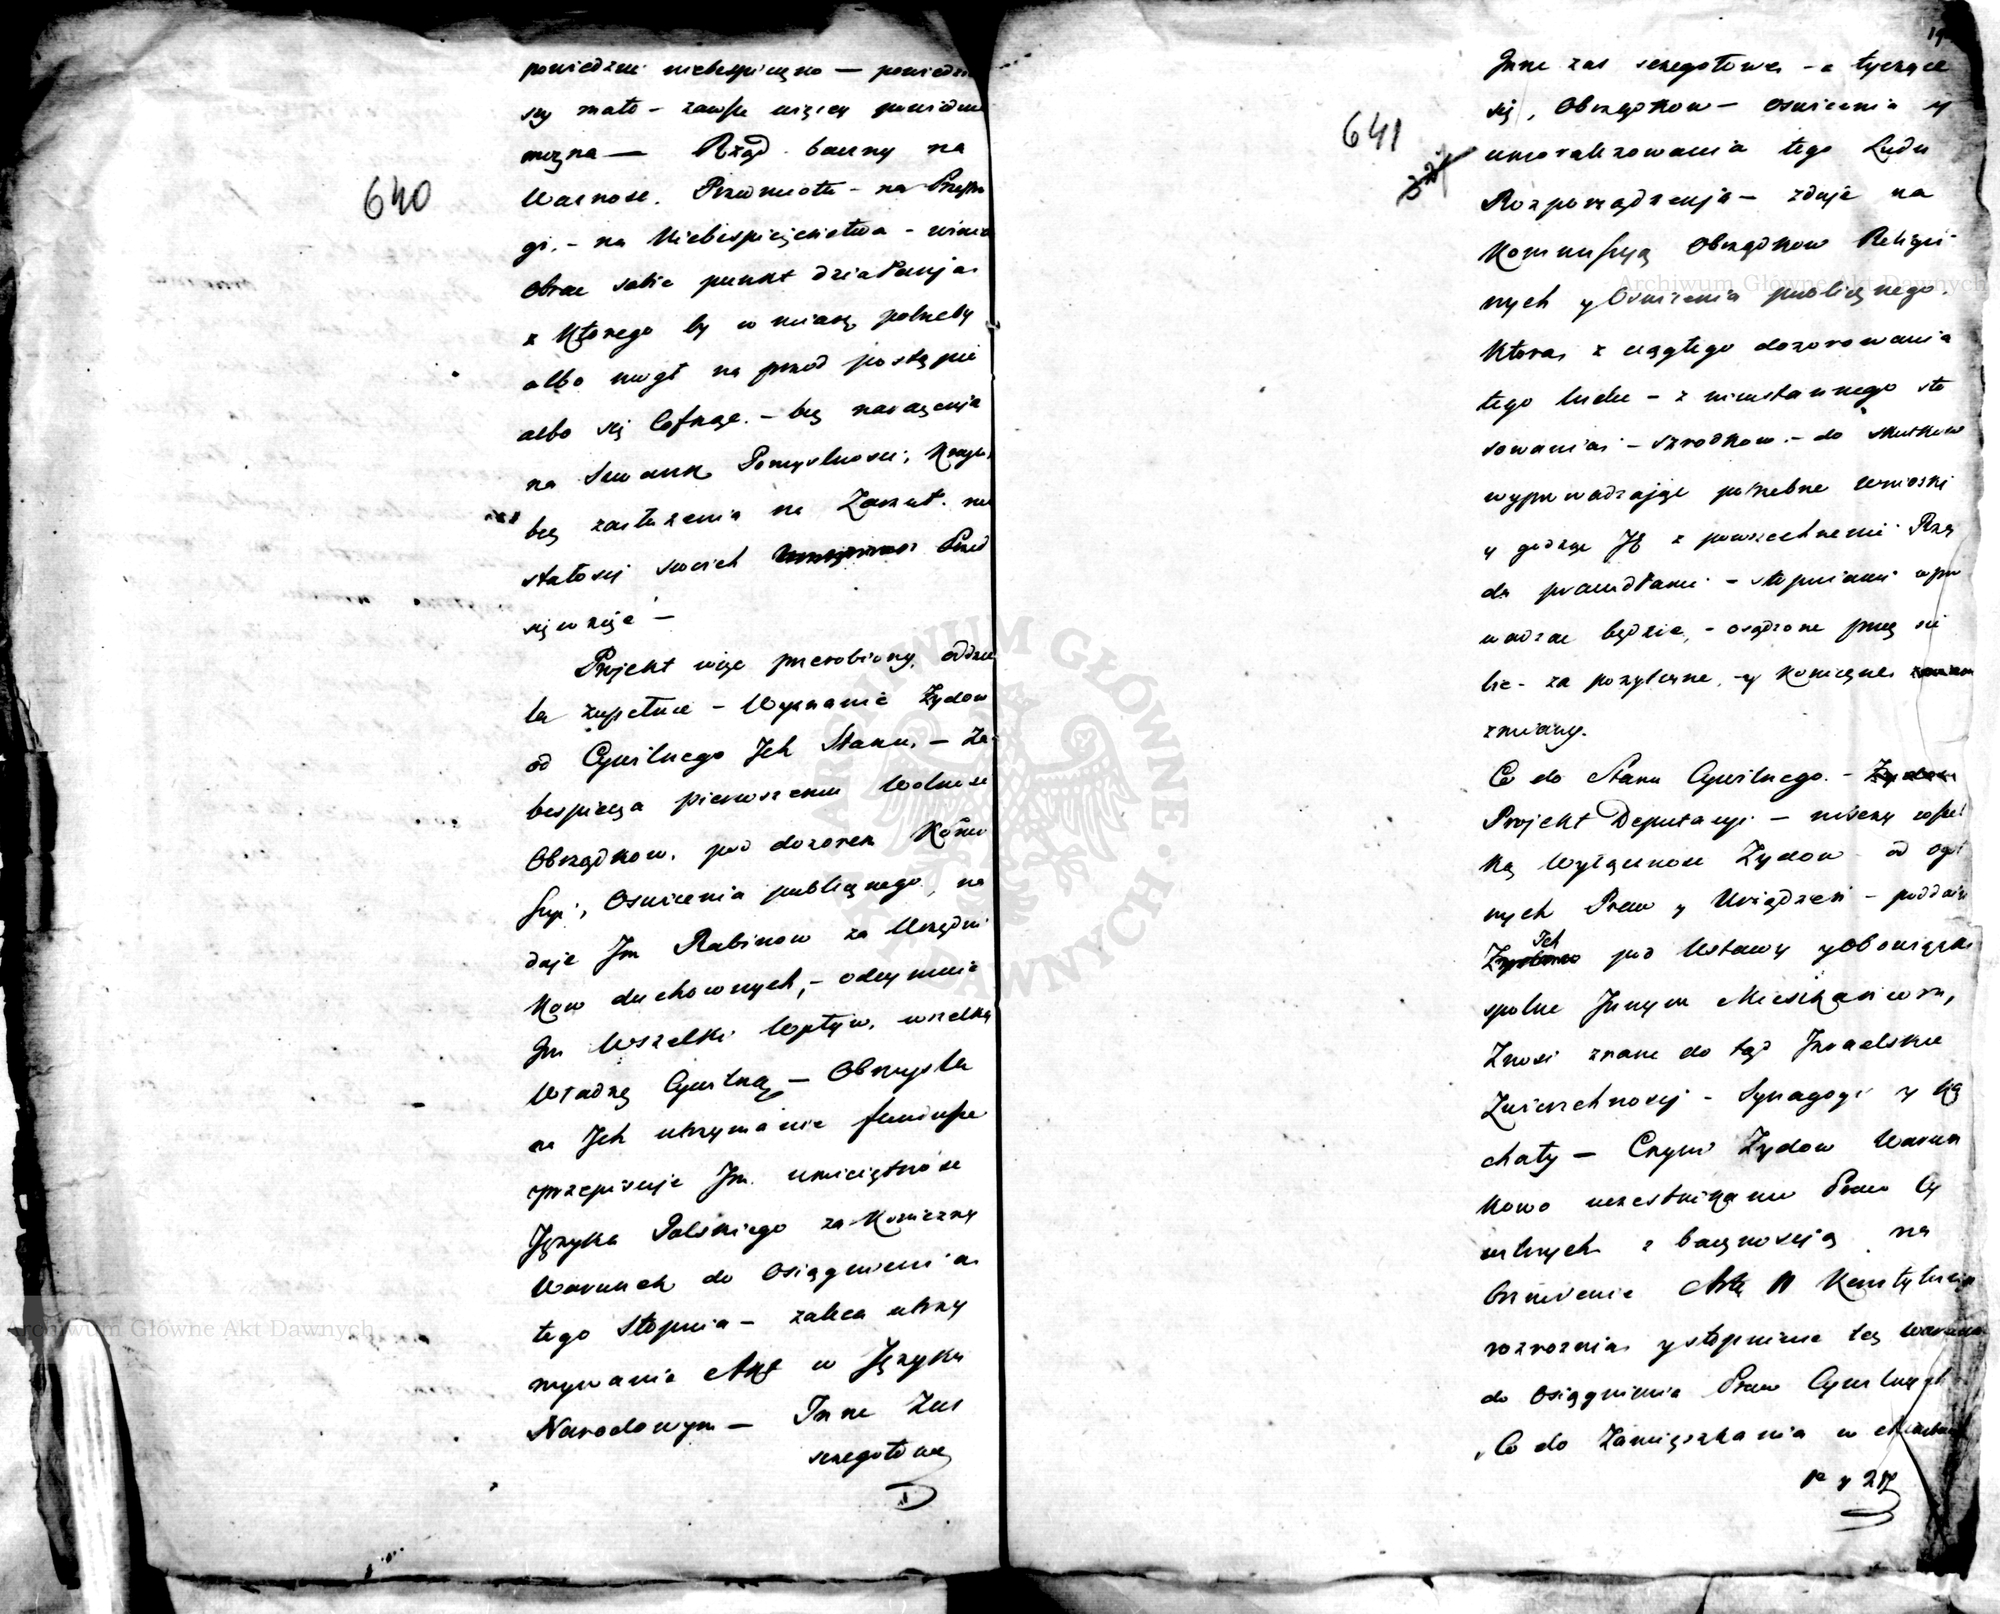 640
powiedzieć niebespieczno — powiedzia
szy mało — zawsze więcey powiedzieć
można — Rząd baczny na
Ważnosc. Przedmiotu — na
gi. — na Niebespieczenstwa — winien
Obrac sobie punkt działania
z Ktorego by w miarę potrzeby
albo mogł na przod postąpic
albo się Cofnąc. — bez narażenia
na Szwank Pomyslnosci, Kraju,
bez zasłużenia na Zarzut. nie
stałosci swoich Przed
sięwzięc —
Projekt więc przerobiony, oddzie
la zupełnie — Wyznanie Żydow
od Cywilnego Ich Stanu, — Za
bespiecza pierwszemu Wolnosc
Obrządkow. pod dozorem Kom̃i
ssyi, Oswiecenia publicznego, na
daje Im Rabinow za Urzędni
kow duchownych, — odeymuie
Im Wszelki Wpływ, wszelką
Władzę Cywilną — Obmysla
na Ich utrzymanie fundusze
przepisuje Im. umieiętnosc
Języka Polskiego za Konieczny
Warunek do Osiągnienia
tego Stopnia — zaleca utrzy
mywanie Akt w Języku
Narodowym — Inne Zas
szczegołowe
19
641
Inne zas szczegołowe — a tyczące
się, Obrządkow — oswiecenia y
umoralizowania tego Ludu
Rozporządzenia — zdaje na
Kommissyą Obrządkow Religii
nych y Oswiecenia publicznego.
Ktora, z ciągłego dozorowania
tego ludu — z nieustannego sto
sowania — szrodkow — do skutkow
wyprowadzając potrzebne wnioski
y godząc Je z powszechnemi Rzą
du prawidłami — stopniami wpro
wadzac będzie, — osądzone przez sie
bie — za pozyteczne, — y Konieczne
zmiany.
Co do Stanu Cywilnego. — Zydow
Projekt Deputacyi — niszczy wszel
ką Wyłącznosc Żydow od ogol
nych Praw y Urządzeń — poddaie
Ich
Zydow pod Ustawy y Obowiązki
spolne Innym Mieszkańcom,
Znosi znane do tąd Izraelskie
Zwierzchnosci — Synagogi y Ka
chały — Czyni Żydow Warun
kowo uczestnikami Praw Cy
wilnych z bacznoscią na
Brzmienie Artu Konstytucyi
rozroznia, y stopniuie też warunki
do Osiągnienia Praw Cywilnych
Co do Zamięszkania w Miastach